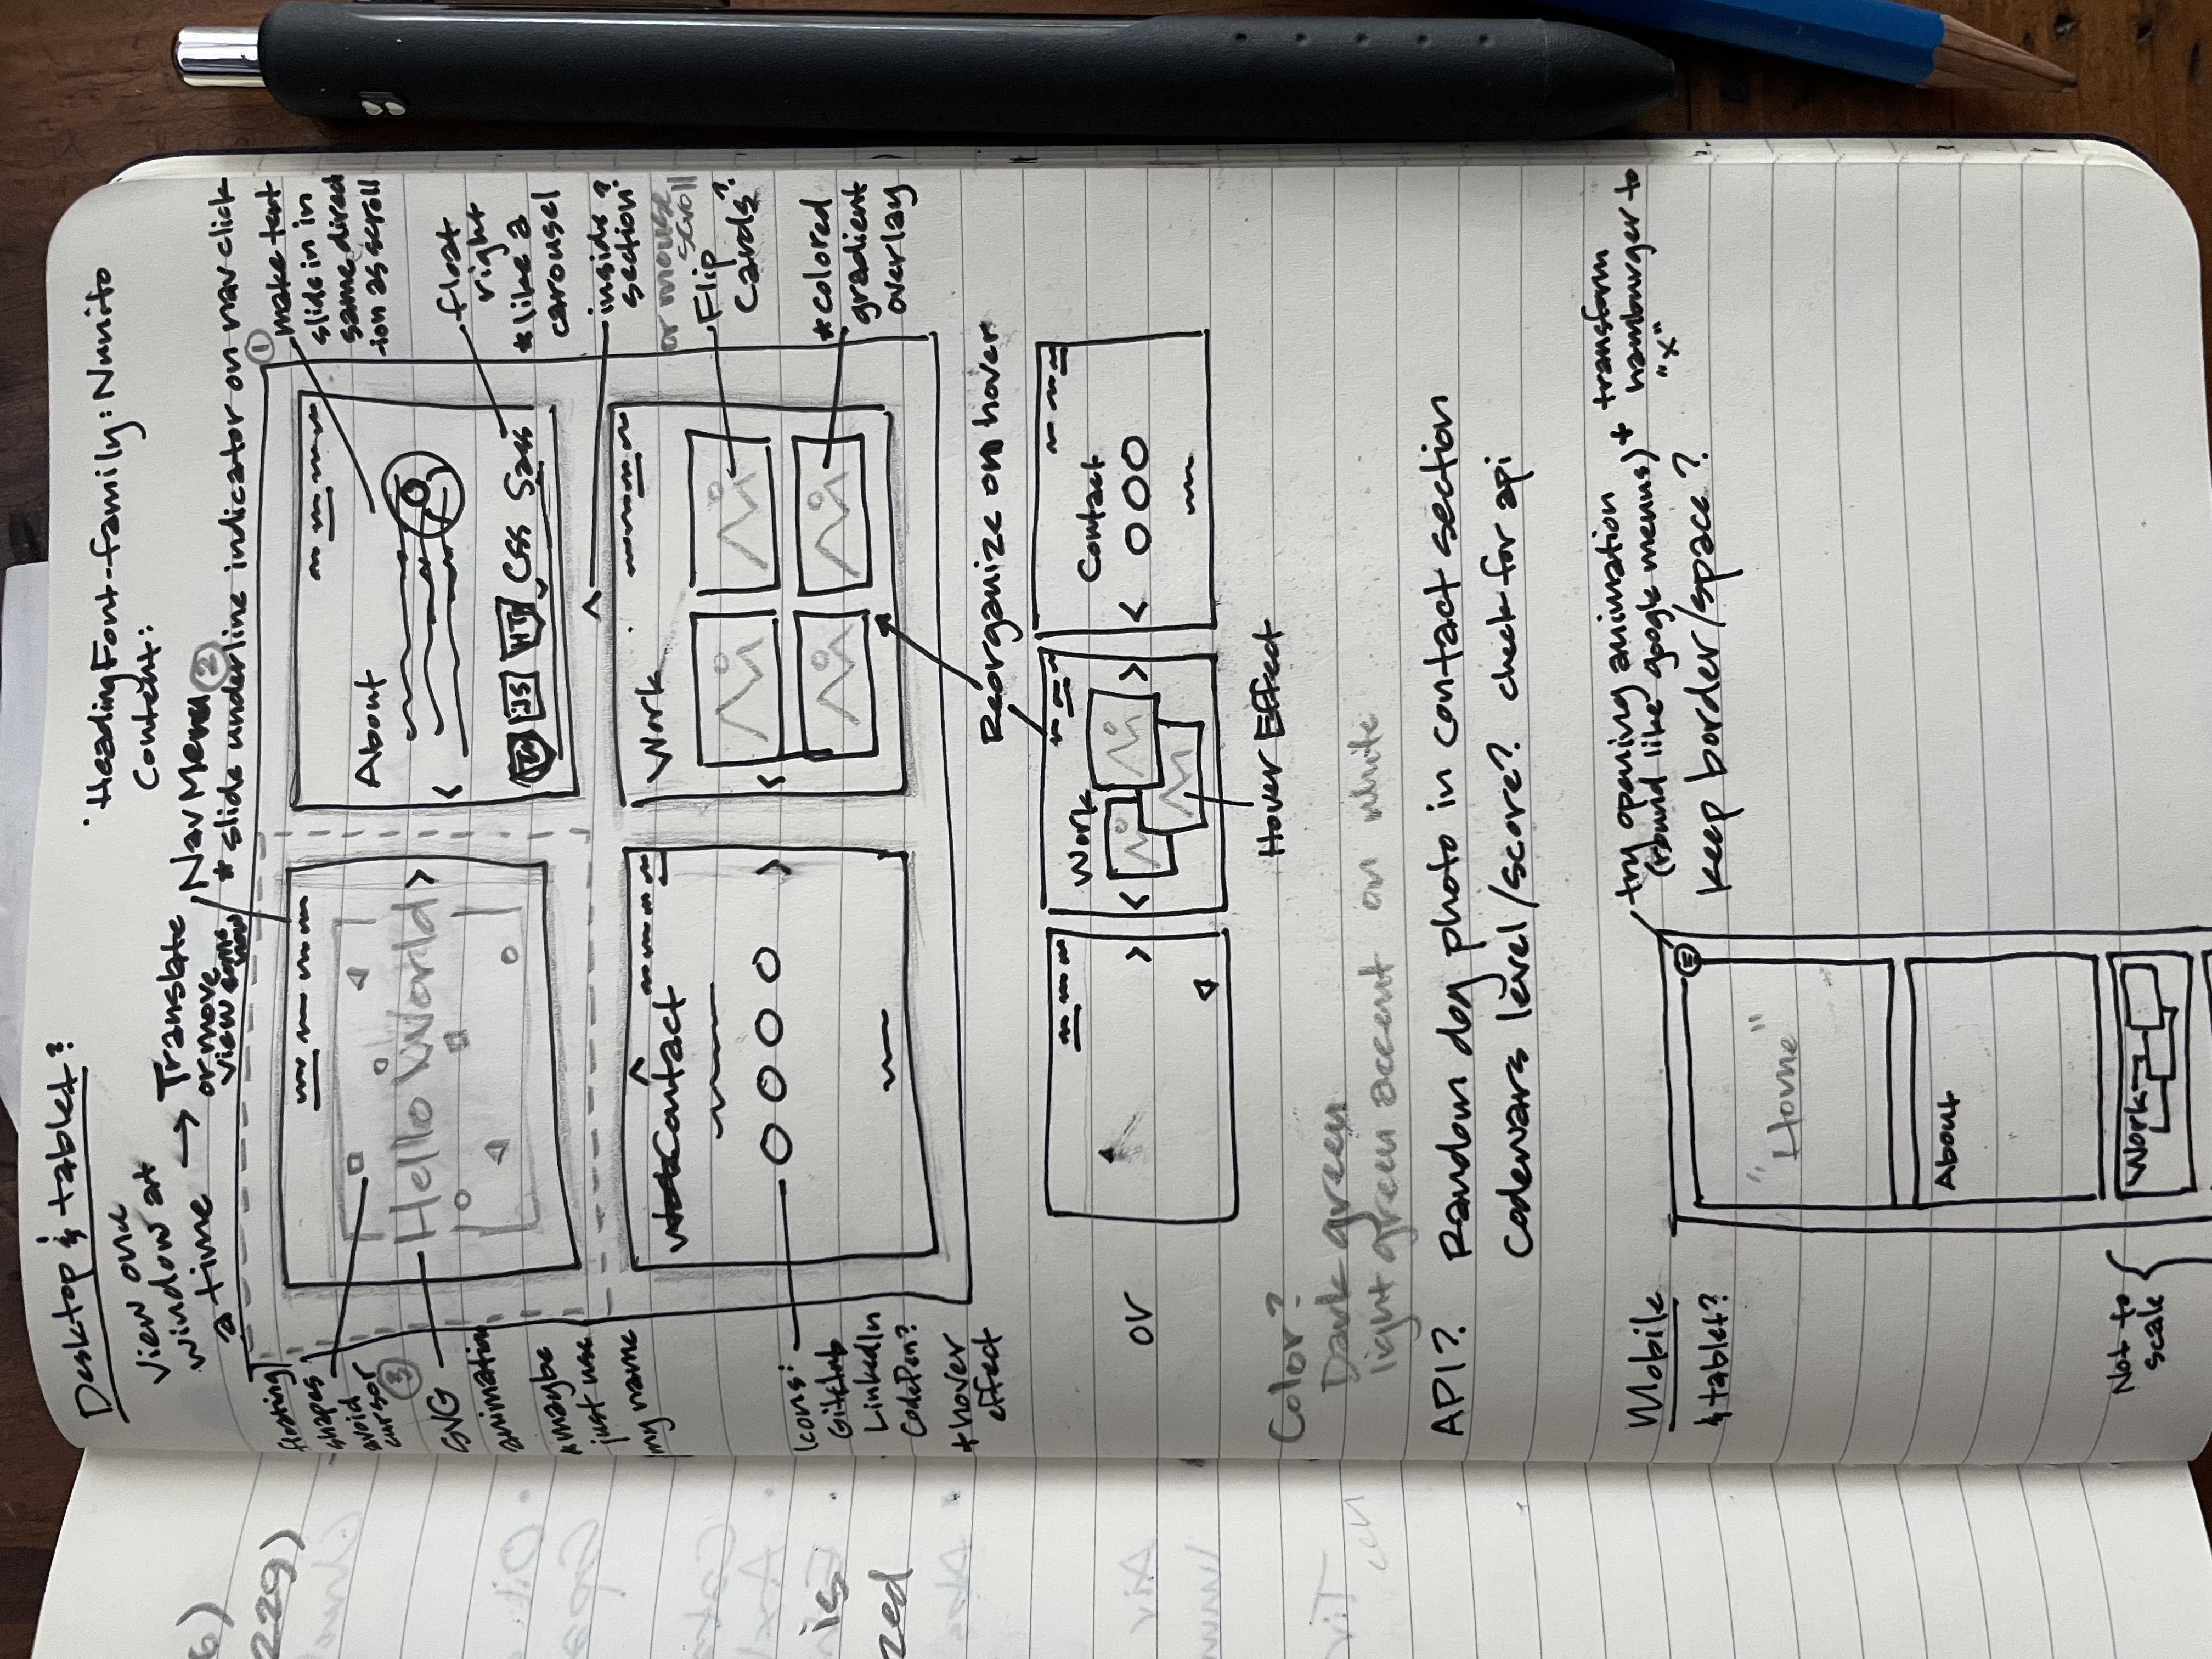 6)
229)
is
zed
Desktop & tablet?
View one
window at
a time → Translate
or move
view somehow
HeadingFont-family: Nunito
Content:
Nav Menu ②
* slide underline indicator on nav click
floating
shapes
avoid
cursor
③
SVG
animation
* maybe
just use
my name
Hello World
>
①
make text
slide in in
same direct
-ion as scroll
About
<
JS
CSS Sass
float
right
* like a
carousel
^
inside
section?
or mouse
scroll
^
Contact
>
Icons:
GitHub
LinkedIn
CodePen?
+ hover
effect
Work
<
Flip
Cards?
* colored
gradient
overlay
Reorganize on hover
or
>
< Work >
< Contact
Hover Effect
Color?
Dark green
light green accent on white
API? Random dog photo in contact section
Codewars level/score? check for api
Mobile
& tablet?
try opening animation
(round like google menus)
+ transform
hamburger to
"x"
keep border/space?
"Home"
About
Not to
scale
Work